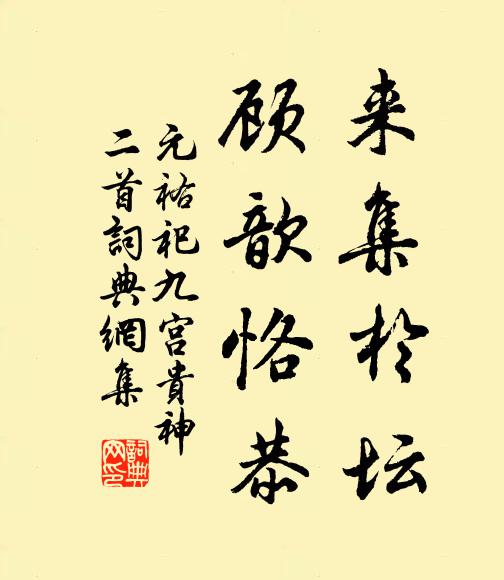 来集於坛
顾歆恪恭
元祐祀九宫貴神
二首詞典網集
詞典
网印